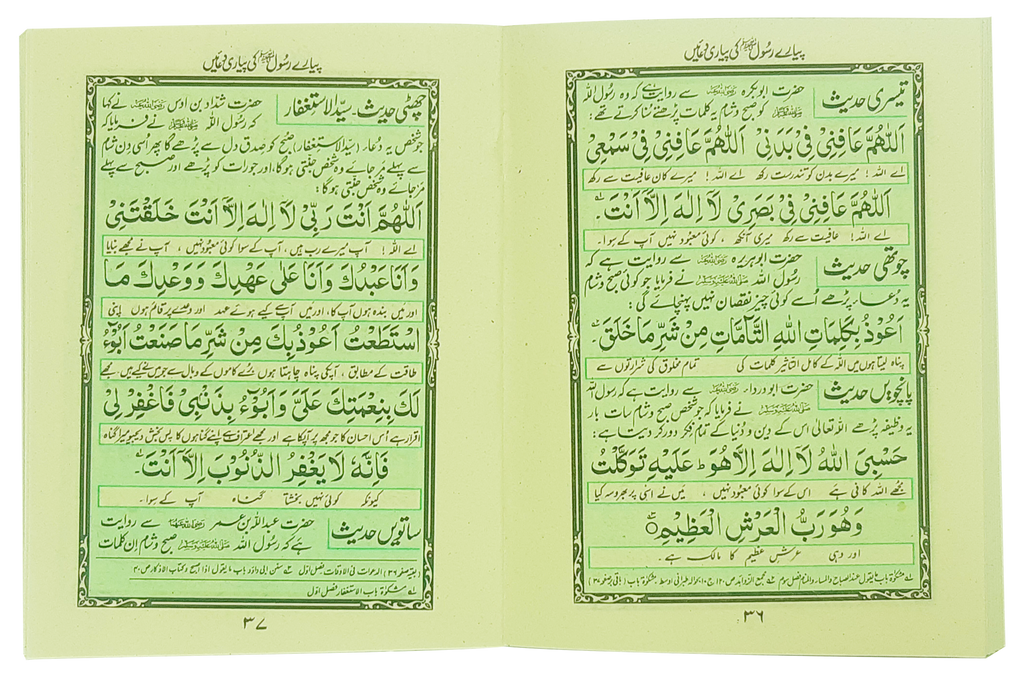 پیارے رسول ﷺ کی پیاری دعائیں
تیسری حدیث
حضرت ابوبکرہ رضی اللہ عنہ سے روایت ہے کہ وہ رسول اللہ
ﷺ کو صبح و شام یہ کلمات پڑھتے سنا کرتے تھے:
اَللّٰهُمَّ عَافِنِیْ فِیْ بَدَنِیْ اَللّٰهُمَّ عَافِنِیْ فِیْ سَمْعِیْ
اے اللہ! میرے بدن کو تندرست رکھ اے اللہ! میرے کان عافیت سے رکھ
اَللّٰهُمَّ عَافِنِیْ فِیْ بَصَرِیْ لَاۤ اِلٰهَ اِلَّاۤ اَنْتَ۔
اے اللہ! عافیت سے رکھ میری آنکھ ، کوئی معبود نہیں آپ کے سوا۔
چوتھی حدیث
حضرت ابوہریرہ رضی اللہ عنہ سے روایت ہے کہ
رسول اللہ ﷺ نے فرمایا جو کوئی صبح و شام
یہ دعا پڑھے اُسے کوئی چیز نقصان نہیں پہنچائے گی:
اَعُوْذُ بِکَلِمَاتِ اللّٰهِ التَّآمَّاتِ مِنْ شَرِّ مَا خَلَقَ۔
پناہ لیتا ہوں میں اللہ کے کامل التاثیر کلمات کی تمام مخلوق کی شرارتوں سے
پانچویں حدیث
حضرت ابودرداء رضی اللہ عنہ سے روایت ہے کہ رسول اللہ
ﷺ نے فرمایا کہ جو شخص صبح و شام سات بار
یہ وظیفہ پڑھے اللہ تعالیٰ اس کے دین و دُنیا کے تمام فکر دور کر دیتا ہے:
حَسْبِیَ اللّٰهُ لَاۤ اِلٰهَ اِلَّا هُوَ ط عَلَیْهِ تَوَکَّلْتُ
مجھے اللہ کافی ہے اس کے سوا کوئی معبود نہیں ، میں نے اسی پر بھروسہ کیا
وَهُوَ رَبُّ الْعَرْشِ الْعَظِیْمِ
اور وہی عرش عظیم کا مالک ہے۔
۳۶
پیارے رسول ﷺ کی پیاری دعائیں
چھٹی حدیث۔ سیّد الاستغفار
حضرت شداد بن اوس رضی اللہ عنہ نے کہا
کہ رسول اللہ ﷺ نے فرمایا کہ
جو شخص یہ دُعاء (سیّد الاستغفار) صبح کو صدق دل سے پڑھے گا پھر اُسی دن شام
سے پہلے مر جائے وہ شخص جنتی ہوگا، اور جو رات کو پڑھے اور صبح سے پہلے
مر جائے وہ شخص جنتی ہوگا:
اَللّٰهُمَّ اَنْتَ رَبِّیْ لَاۤ اِلٰهَ اِلَّاۤ اَنْتَ خَلَقْتَنِیْ
اے اللہ! آپ میرے رب ہیں، آپ کے سوا کوئی معبود نہیں ، آپ نے مجھے بنایا
وَاَنَا عَبْدُكَ وَاَنَا عَلٰی عَهْدِكَ وَوَعْدِكَ مَا
اور میں بندہ ہوں آپ کا، اور میں آپ سے کیے ہوئے عہد اور وعدے پر قائم ہوں اپنی
اسْتَطَعْتُ اَعُوْذُ بِكَ مِنْ شَرِّ مَا صَنَعْتُ اَبُوْٓءُ
طاقت کے مطابق ، آپکی پناہ چاہتا ہوں بُرے کاموں کے وبال سے جو میں نے کیے ہیں، مجھے
لَكَ بِنِعْمَتِكَ عَلَیَّ وَاَبُوْٓءُ بِذَنْبِیْ فَاغْفِرْ لِیْ
اقرار ہے اُس احسان کا جو مجھ پر آپکا ہے اور مجھے اعتراف ہے اپنے گناہوں کا پس بخش دیجیو میرا گناہ
فَاِنَّهٗ لَا یَغْفِرُ الذُّنُوْبَ اِلَّاۤ اَنْتَ۔
کیونکہ کوئی نہیں بخشتا گناہ آپ کے سوا۔
ساتویں حدیث
حضرت عبداللہ بن عمر رضی اللہ عنہما سے روایت
ہے کہ رسول اللہ ﷺ صبح و شام اِن کلمات
لے مشکوٰۃ باب الاستغفار فصل اوّل
۳۷